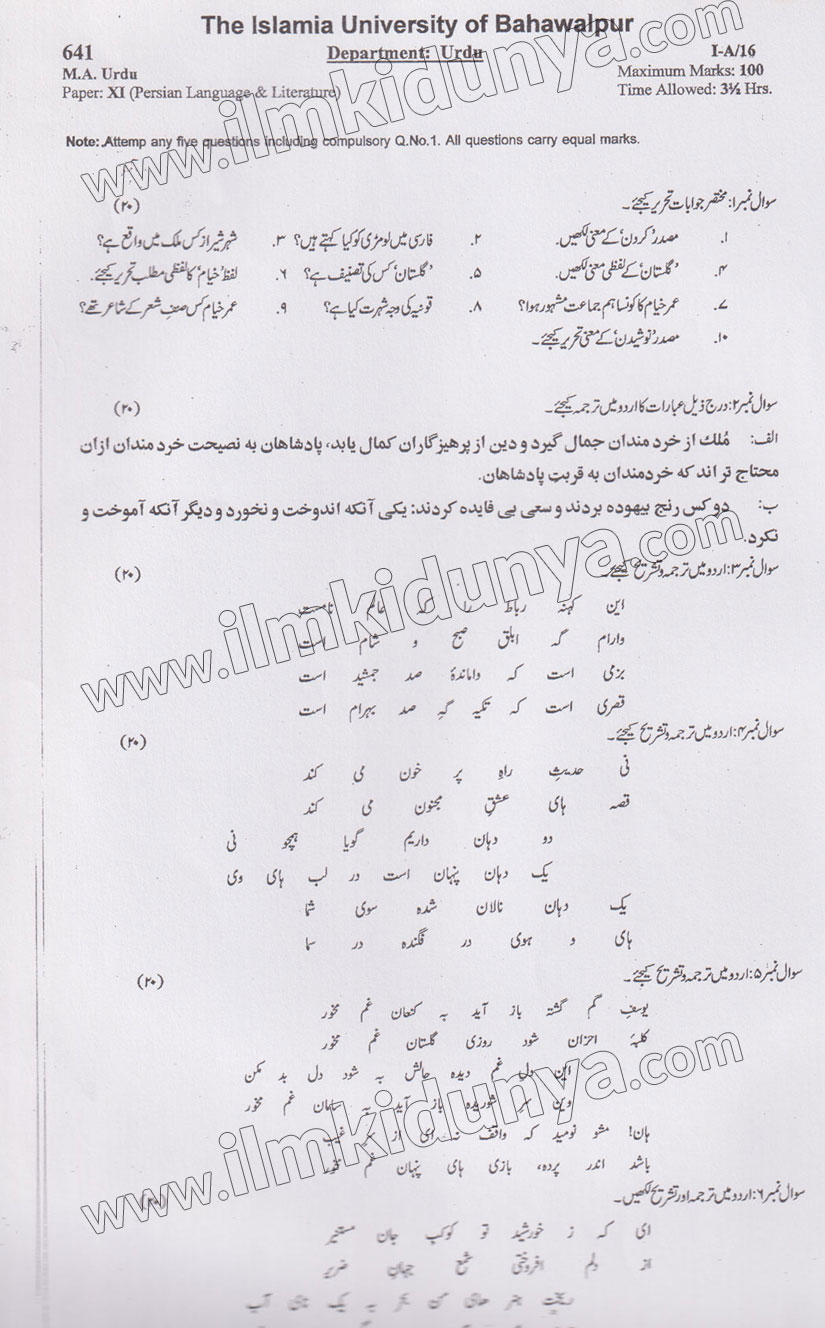 The Islamia University of Bahawalpur
641 Department: Urdu I-A/16
M.A. Urdu Maximum Marks: 100
Paper: XI (Persian Language & Literature) Time Allowed: 3½ Hrs.
Note: Attemp any five questions including compulsory Q.No.1. All questions carry equal marks.
سوال نمبر۱: مختصر جوابات تحریر کیجئے۔ (۲۰)
۱. مصدر ’کردن‘ کے معنی لکھیں. ۲. فارسی میں لومڑی کو کیا کہتے ہیں؟ ۳. شہر شیراز کس ملک میں واقع ہے؟
۴. ’گلستان‘ کے لفظی معنی لکھیں. ۵. ’گلستان‘ کس کی تصنیف ہے؟ ۶. لفظ ’خیام‘ کا لفظی مطلب تحریر کیجئے.
۷. عمر خیام کا کونسا ہم جماعت مشہور ہوا؟ ۸. قونیہ کی وجہ شہرت کیا ہے؟ ۹. عمر خیام کس صنفِ شعر کے شاعر تھے؟
۱۰. مصدر ’نوشیدن‘ کے معنی تحریر کیجئے۔
سوال نمبر۲: درج ذیل عبارات کا اردو میں ترجمہ کیجئے۔ (۲۰)
الف: مُلك از خرد مندان جمال گیرد و دین از پرهیزگاران کمال یابد، پادشاهان به نصیحت خرد مندان ازان
محتاج تر اند که خردمندان به قربتِ پادشاهان.
ب: دو کس رنج بیهوده بردند و سعی بی فایده کردند: یکی آنکه اندوخت و نخورد و دیگر آنکه آموخت و
نکرد.
سوال نمبر۳: اردو میں ترجمہ و تشریح کیجئے۔ (۲۰)
این کہنہ رباط را کہ عالم نامست
وارام گہ ابلق صبح و شام است
بزمی است کہ داماندۂ صد جمشید است
قصری است کہ تکیہ گہِ صد بہرام است
سوال نمبر۴: اردو میں ترجمہ و تشریح کیجئے۔ (۲۰)
نی حدیثِ راہِ پر خون می کند
قصہ ہای عشقِ مجنون می کند
دو دہان داریم گویا ہمچو نی
یک دہان پنہان است در لب ہای وی
یک دہان نالان شدہ سوی شما
ہای و ہوی در فگندہ در سما
سوال نمبر۵: اردو میں ترجمہ و تشریح کیجئے۔ (۲۰)
یوسفِ گم گشتہ باز آید بہ کنعان غم مخور
کلبۂ احزان شود روزی گلستان غم مخور
این دل غم دیدہ حالش بہ شود دل بد مکن
وین سر شوریدہ باز آید بہ سامان غم مخور
ہان! مشو نومید کہ واقف نہ ای از سرِ غیب
باشد اندر پردہ، بازی ہای پنہان غم مخور
سوال نمبر۶: اردو میں ترجمہ اور تشریح لکھیں۔ (۲۰)
ای کہ ز خورشید تو کوکب جان مستنیر
از دلم افروختی شمع جہان ضریر
ریخت ہنر ھای من بحر بہ یک نای آب
www.ilmkidunya.com
www.ilmkidunya.com
www.ilmkidunya.com